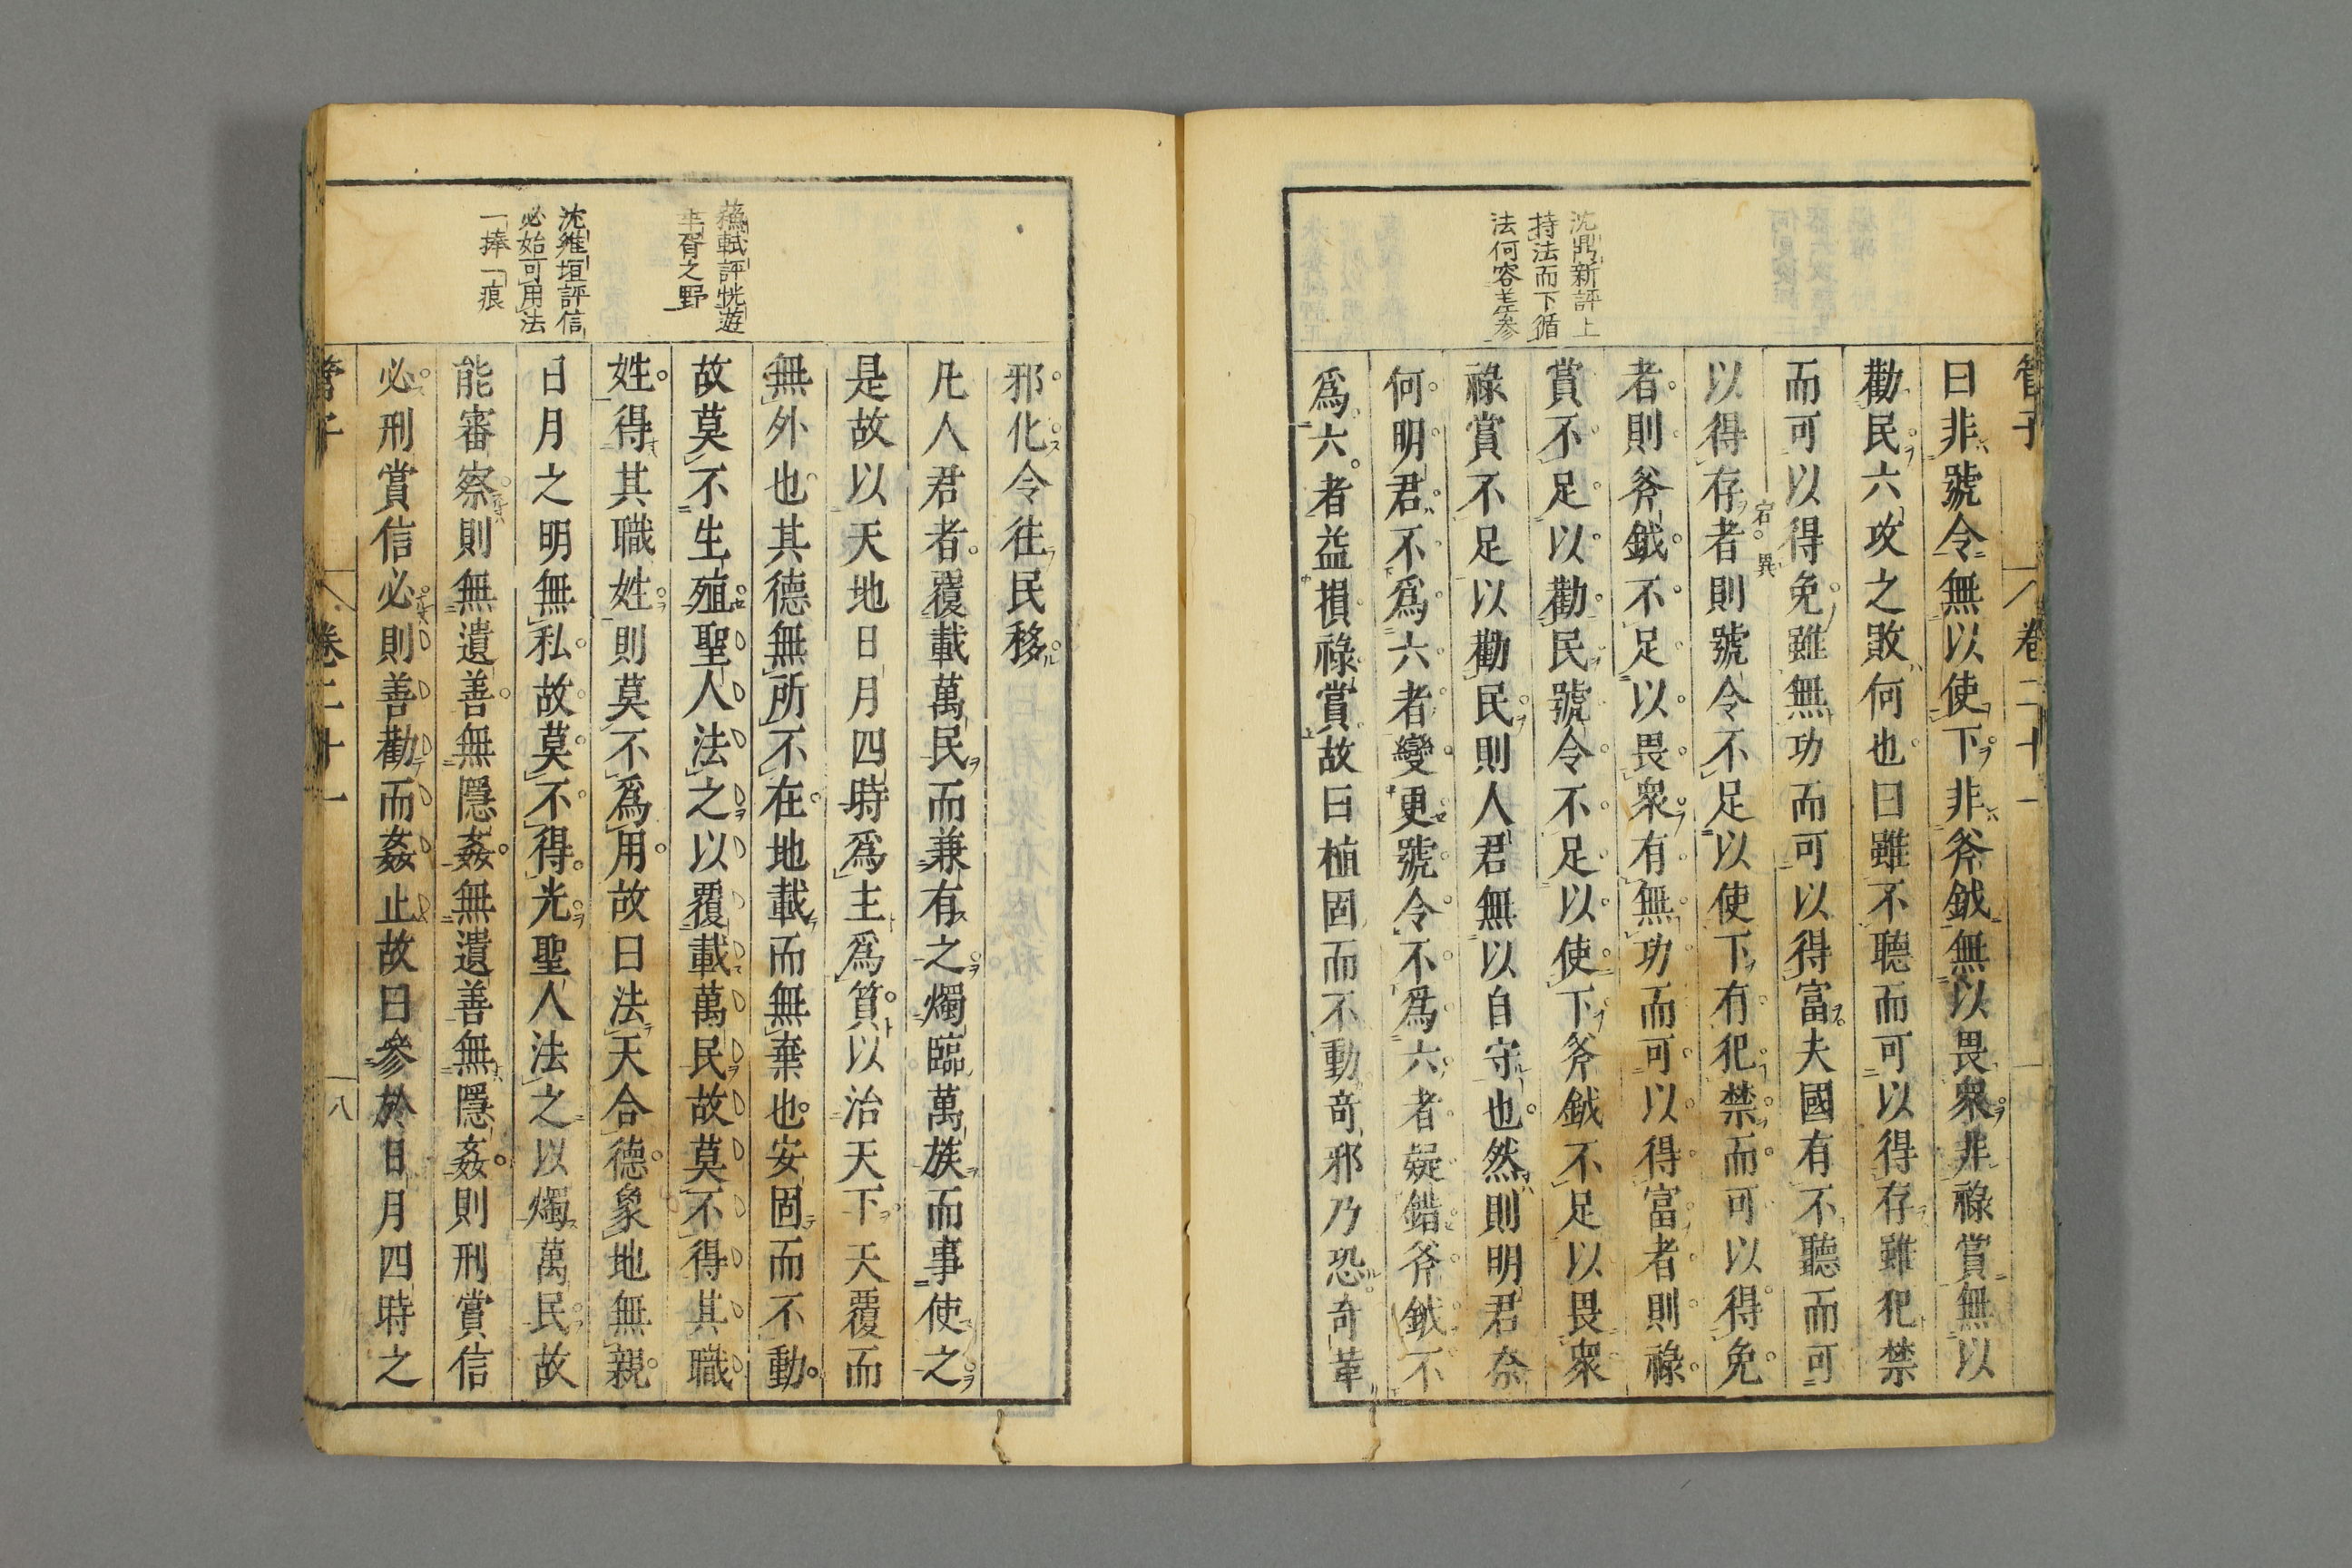 管子
卷二十一
曰非號令無以使下非斧鉞無以畏衆非祿賞無以
勸民六攻之敗何也曰雖不聽而可以得存雖犯禁
而可以得免雖無功而可以得富夫國有不聽而可
以得存者則號令不足以使下有犯禁而可以得免
者則斧鉞不足以畏衆有無功而可以得富者則祿
賞不足以勸民號令不足以使下斧鉞不足以畏衆
祿賞不足以勸民則人君無以自守也然則明君奈
何明君不爲六者變更號令不爲六者疑錯斧鉞不
爲六者益損祿賞故曰植固而不動奇邪乃恐奇革
沈鼎新評上
持法而下循
法何容差参
邪化令往民移
凡人君者覆載萬民而兼有之燭臨萬族而事使之
是故以天地日月四時爲主爲質以治天下天覆而
無外也其德無所不在地載而無棄也安固而不動
故莫不生殖聖人法之以覆載萬民故莫不得其職
姓得其職姓則莫不爲用故曰法天合德象地無親
日月之明無私故莫不得光聖人法之以燭萬民故
能審察則無遺善無隱姦無遺善無隱姦則刑賞信
必刑賞信必則善勸而姦止故曰參於日月四時之
蘓軾評恍遊
華胥之野
沈維垣評信
必始可用法
一捧一痕
管子
卷二十一
八